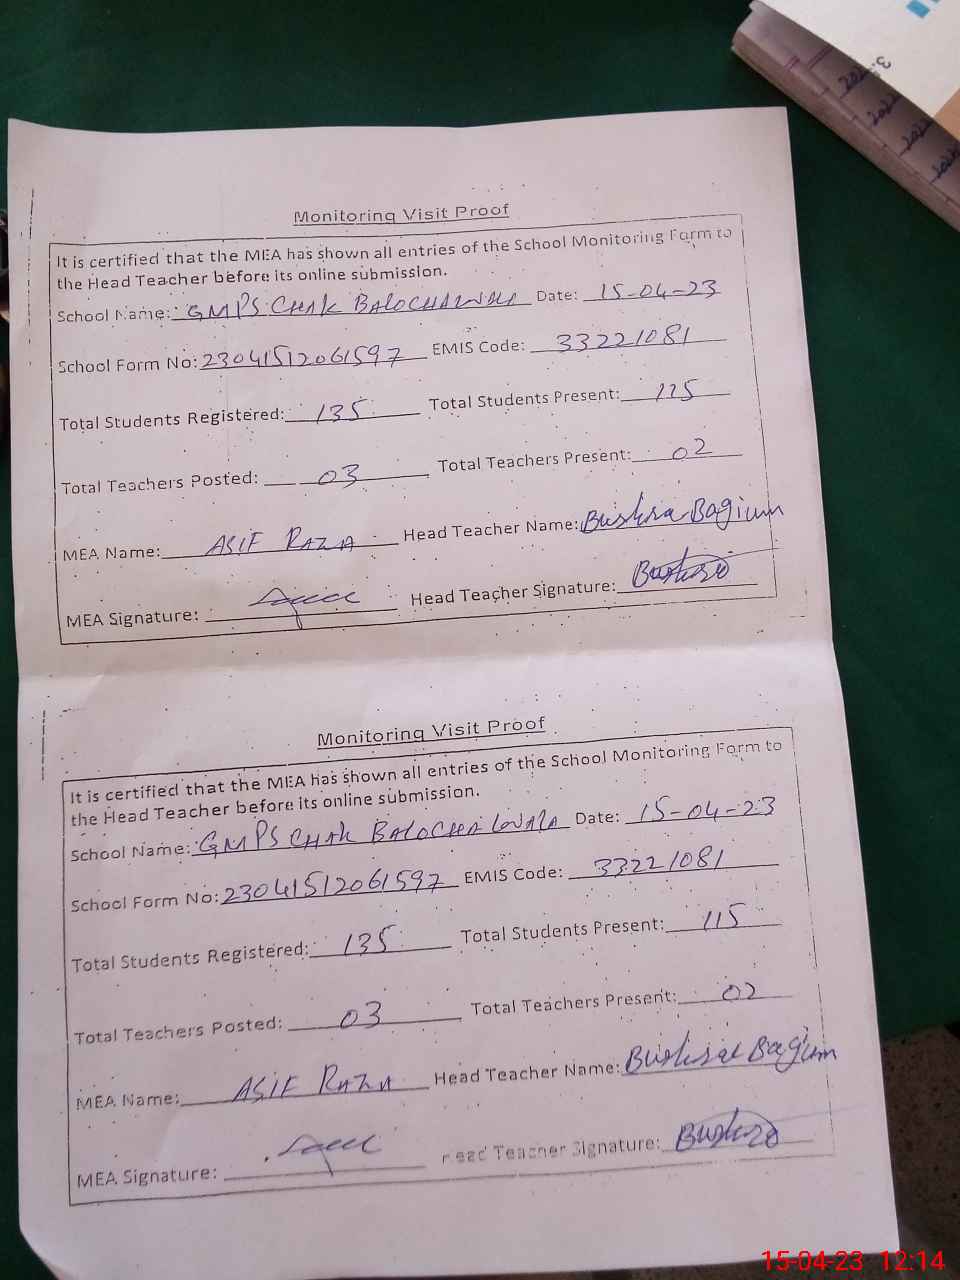 Monitoring Visit Proof
It is certified that the MEA has shown all entries of the School Monitoring Form to
the Head Teacher before its online submission.
School Name: GMPS CHAK BALOCHAWALA Date: 15-04-23
School Form No: 23041512061597 EMIS Code: 33221081
Total Students Registered: 135 Total Students Present: 115
Total Teachers Posted: 03 Total Teachers Present: 02
MEA Name: ASIF RAZA Head Teacher Name: Bushra Bagium
MEA Signature: Head Teacher Signature: Bushra
Monitoring Visit Proof
It is certified that the MEA has shown all entries of the School Monitoring Form to
the Head Teacher before its online submission.
School Name: GMPS CHAK BALOCHAWALA Date: 15-04-23
School Form No: 23041512061597 EMIS Code: 33221081
Total Students Registered: 135 Total Students Present: 115
Total Teachers Posted: 03 Total Teachers Present: 02
MEA Name: ASIF RAZA Head Teacher Name: Bushra Bagium
MEA Signature: Head Teacher Signature: Bushra
15-04-23 12:14